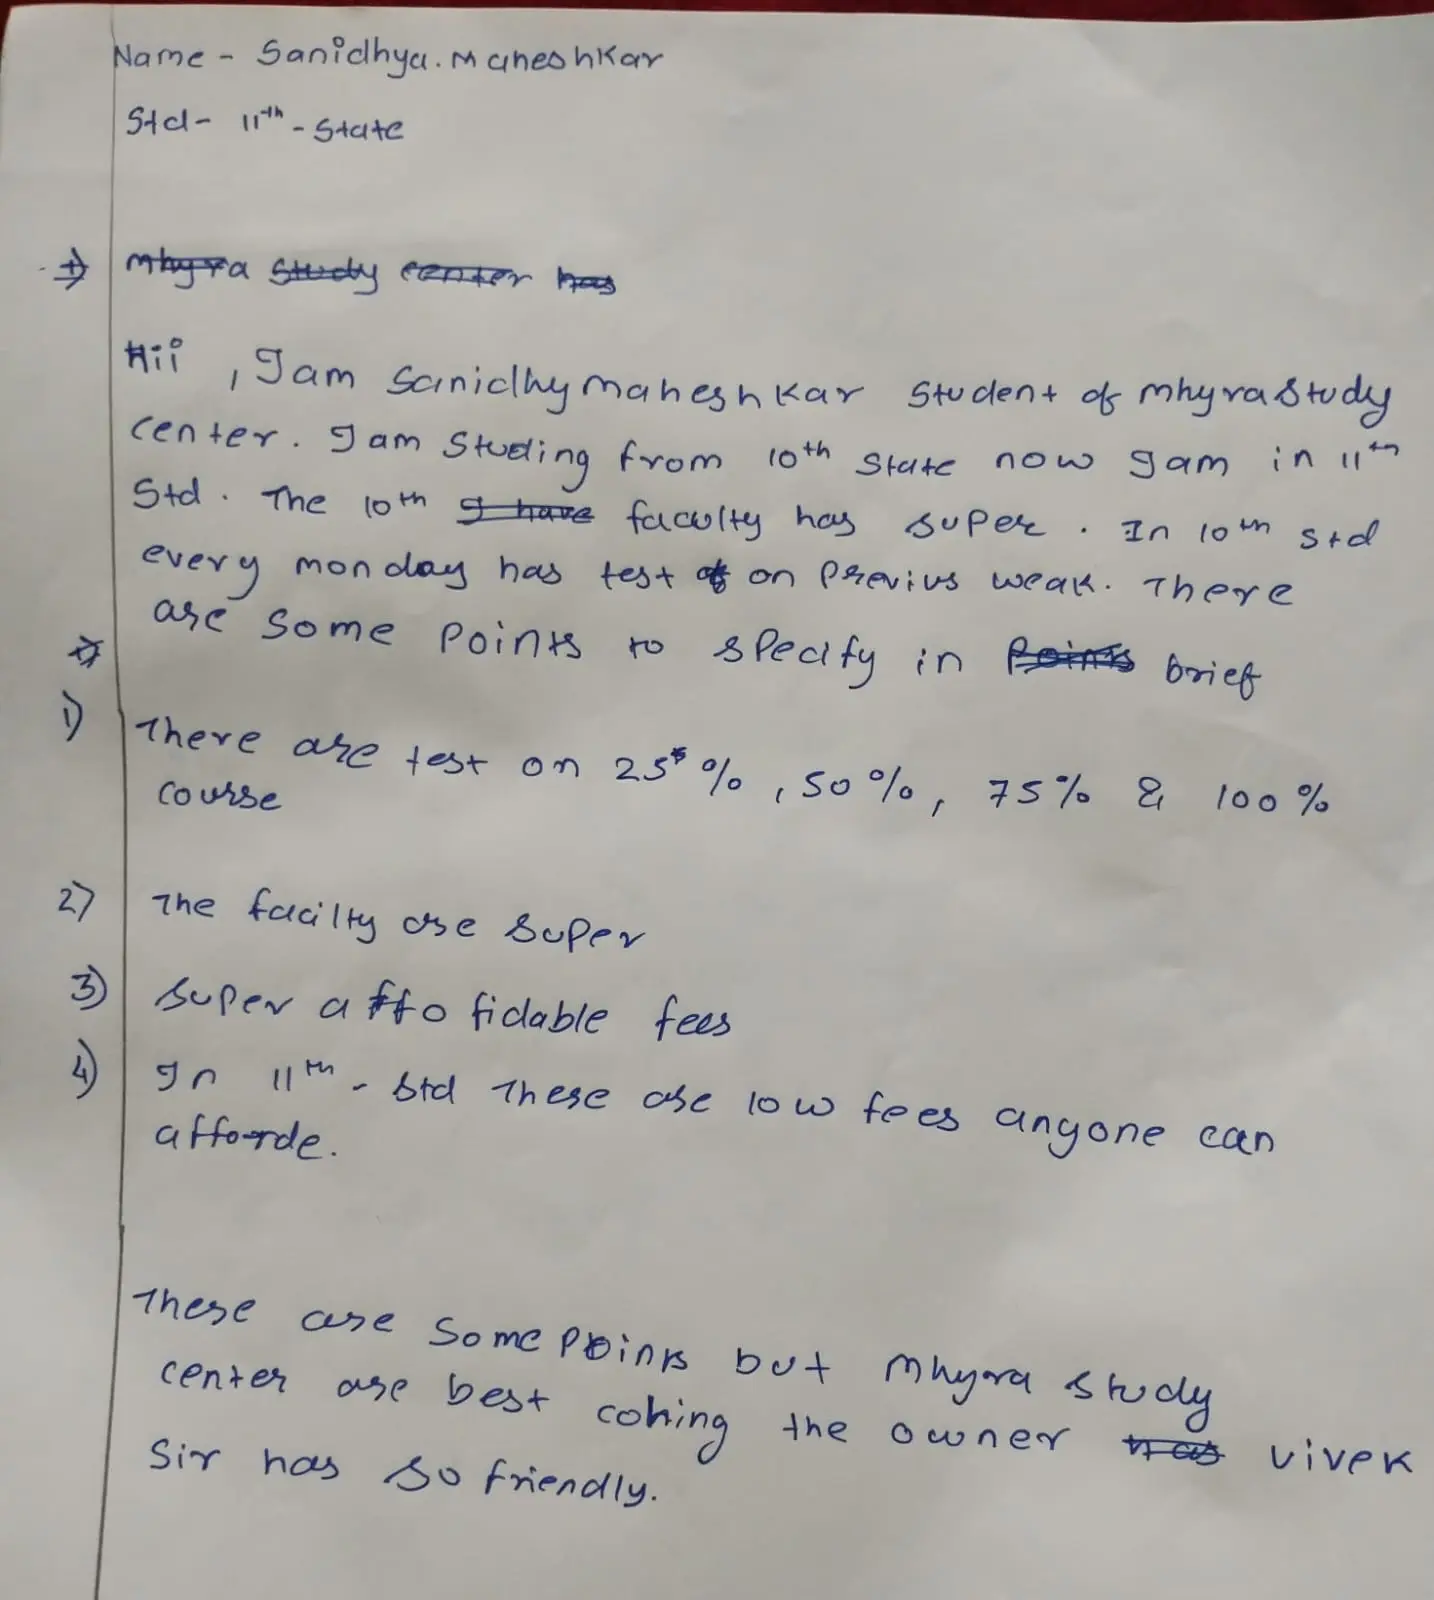 Name - Sanidhya. Maheshkar
Std- 11th - State
Mhyra study center has
Hii , I am Sanidhy maheshkar Student of mhyra study
center. I am Studing from 10th State now I am in 11th
Std. The 10th I have faculty has super. In 10th std
every monday has test of on Previus weak. There
are some Points to specify in Points brief
1) There are test on 25% , 50%, 75% & 100%
course
2) The facilty are super
3) super affo fidable fees
4) In 11th - std These are low fees anyone can
afforde.
These are some Points but Mhyra study
center are best cohing the owner has vivek
Sir has so friendly.